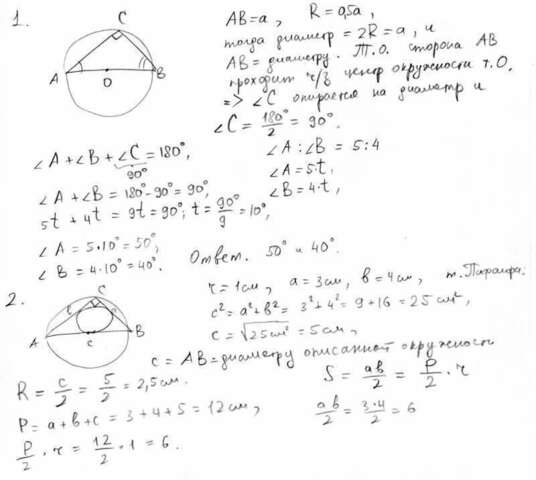 1.
C
A
O
B
AB=a, R=0,5a,
тогда диаметр = 2R = a, и
AB = диаметру. Т.О. сторона AB
проходит ч/з центр окружности т.О.
=> ∠C опирается на диаметр и
∠C = 180°/2 = 90°.
∠A + ∠B + ∠C = 180°,
90°
∠A : ∠B = 5:4
∠A + ∠B = 180° - 90° = 90°,
∠A = 5·t,
∠B = 4·t,
5t + 4t = 9t = 90°; t = 90°/9 = 10°,
∠A = 5·10° = 50°,
∠B = 4·10° = 40°.
Ответ. 50° и 40°.
2.
C
A
B
c
r = 1см, a = 3см, b = 4см, т. Пифагора:
c² = a² + b² = 3² + 4² = 9 + 16 = 25 см²,
c = √25см² = 5см,
c = AB = диаметру описанной окружности
R = c/2 = 5/2 = 2,5см.
S = ab/2 = P/2 · r
P = a + b + c = 3 + 4 + 5 = 12 см,
ab/2 = 3·4/2 = 6
P/2 · r = 12/2 · 1 = 6.